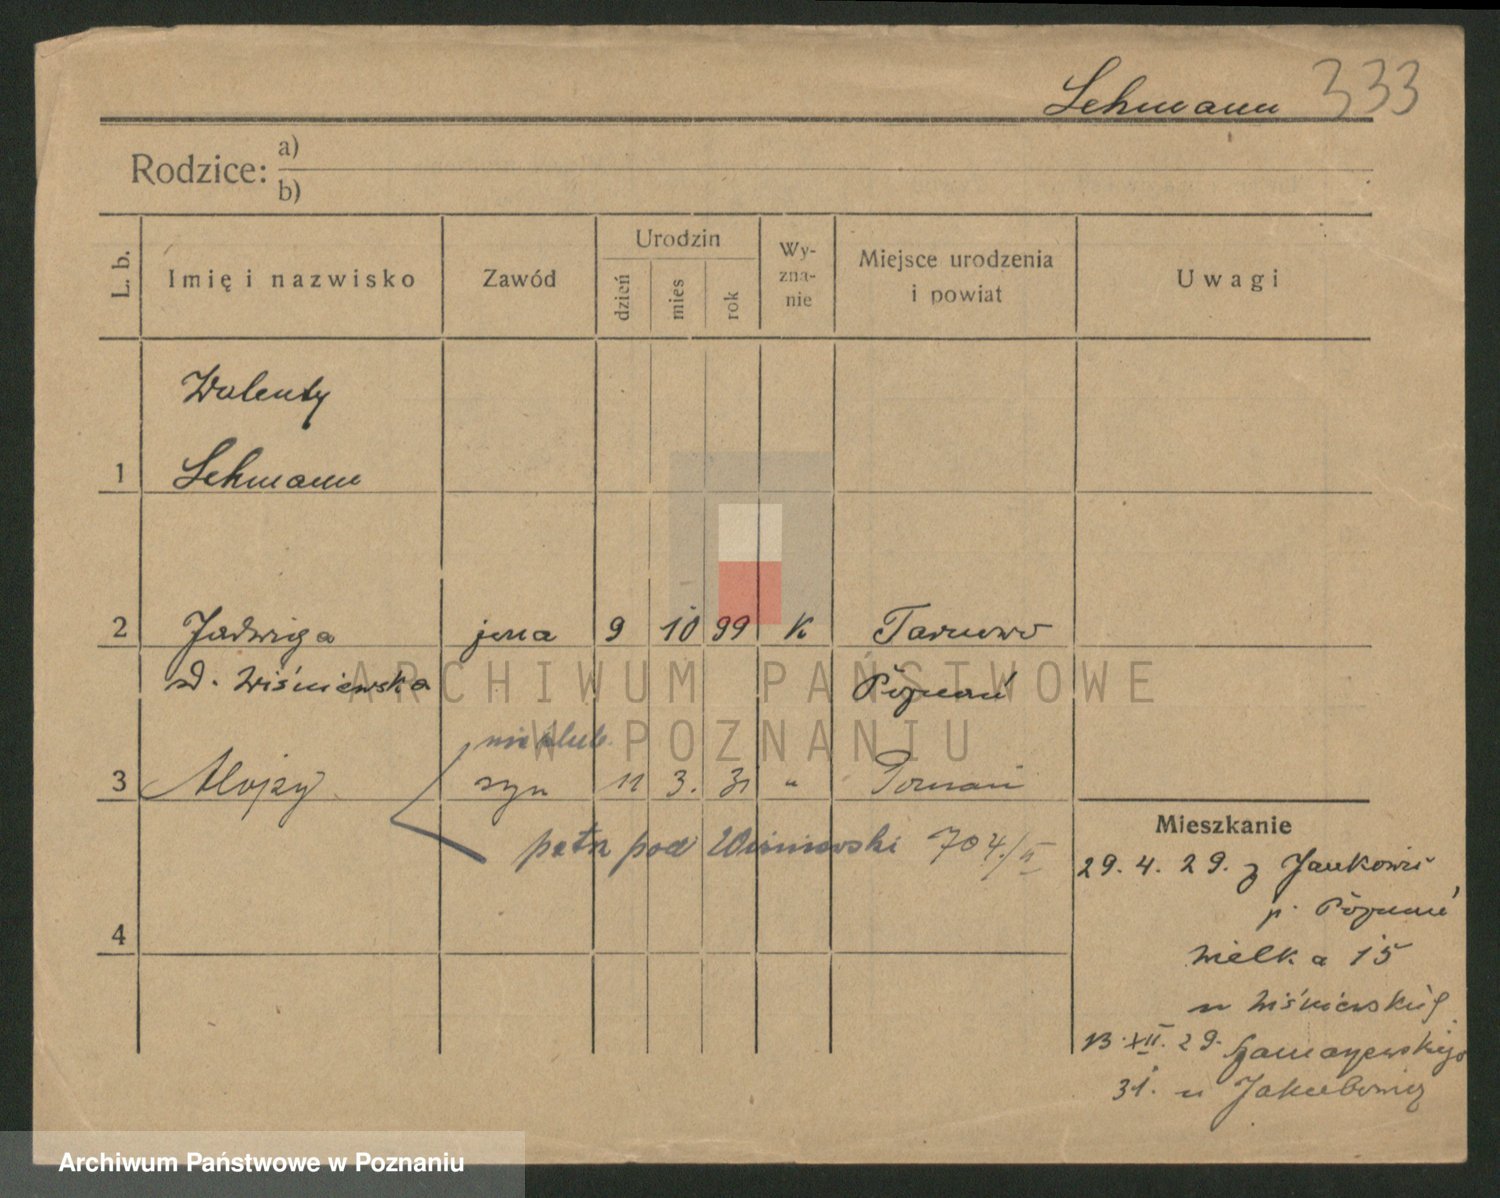 Lehmann 333
Rodzice: a)
b)
L. b.
Imię i nazwisko
Zawód
Urodzin
dzień
mies
rok
Wy-
zna-
nie
Miejsce urodzenia
i powiat
Uwagi
Walenty
1 Lehmann
2 Jadwiga żona 9 10 99 K Tarnowo
d. Wiśniewska Poznań
ARCHIWUM PAŃSTWOWE
W POZNANIU
nieślub.
3 Alojzy syn 11 3. 31 " Poznań
patrz pod Wiśniewski 704/II
4
Mieszkanie
29. 4. 29. z Jankowic
p. Poznań
Wielka 15
u Wiśniewskiej
13. XII. 29. Szamarzewskiego
31. u Jakubowicz
Archiwum Państwowe w Poznaniu